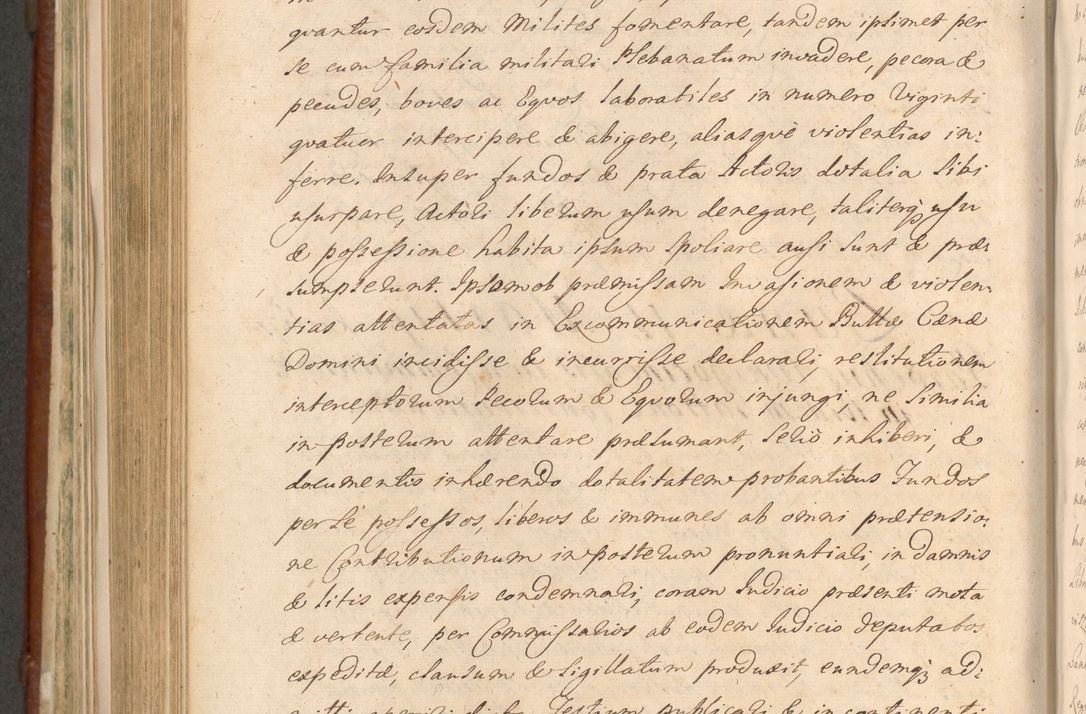 quantur eosdem Milites fomentare, tandem ipsimet per
se cum familia militari Plebanatum invadere, pecora &
pecudes, boves ac Equos laboratiles in numero Viginti
quatuor intercipere & abigere, aliasquè violentias in:
ferre. Insuper fundos & prata Actoris dotalia sibi
usurpare, Actori liberum usum denegare, taliterq; usu
& possessione habita ipsum spoliare ausi sunt & præ:
sumpserunt. Ipsam ob præmissam Invasionem & violen:
tias attentatas in Excommunicationem Bullæ Cænæ
Domini incidisse & incurrisse declarari, restitutionem
interceptorum Pecorum & Equorum injungi, ne similia
in posterum attentare præsumant, seriò inhiberi, &
documentis inhærendo dotalitatem probantibus Fundos
per se possessos, liberos & immunes ab omni prætensio:
ne Contributionum in posterum pronuntiari, in damnis
& litis expensis condemnari, coram Judicio præsenti mota
& vertente, per Commissarios ab eodem Judicio deputatos
expeditæ, clausum & sigillatum produxit, eundemq; ad:
Testium publicari & in continenti